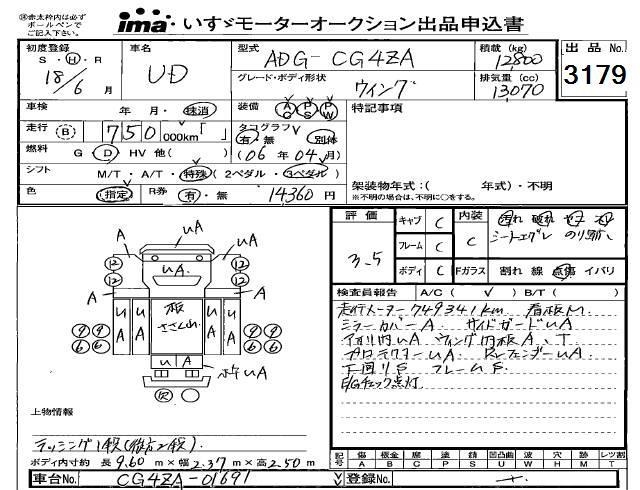 ※赤太枠内は必ず
ボールペンで
ご記入下さい。
ima いすゞモーターオークション出品申込書
初度登録 車名 型式 積載 (kg) 出品 No.
S・H・R UD ADG-CG4ZA 12800 3179
18/6 月 グレード・ボディ形状 ウイング 排気量 (cc) 13070
車検 年・月・抹消 装備 AC PS PW 特記事項
走行 (B) 750 000km「 」 タコグラフ 有・無 別体
燃料 G D HV 他( ) (06年04月)
シフト M/T・A/T・特殊 (2ペダル・3ペダル) 架装物年式:( 年式)・不明
※不明の場合は、不明に○をする。
色 指定 R券 有・無 14360 円
評価 キャブ C 内装 汚れ 破れ
3.5 フレーム C C
ボディ C Fガラス 割れ 線 点傷 イバリ
検査員報告 A/C ( ) B/T ( )
走行メーター749341km 看板M
ミラーカバーA サイドガードUA
アオリ内UA ウイング内板A、T
プロテクターUA RレフェンダーUA
下回りS フレームS
E/Gチェック点灯
A UA A
12 12
12 12
UA
A A
U A U A 板 ささくれ U A U A
9 9 9 9
6 6 6 6
UA
UA
上物情報
ラッシング1段
ボディ内寸約 長 9.60 m×幅 2.37 m×高 2.50 m
記号 傷 板金 腐 塗 錆 凹凸曲 波 穴 跡 レツ工
A B C P S U W H M T
車台No. CG4ZA-01691 登録No.